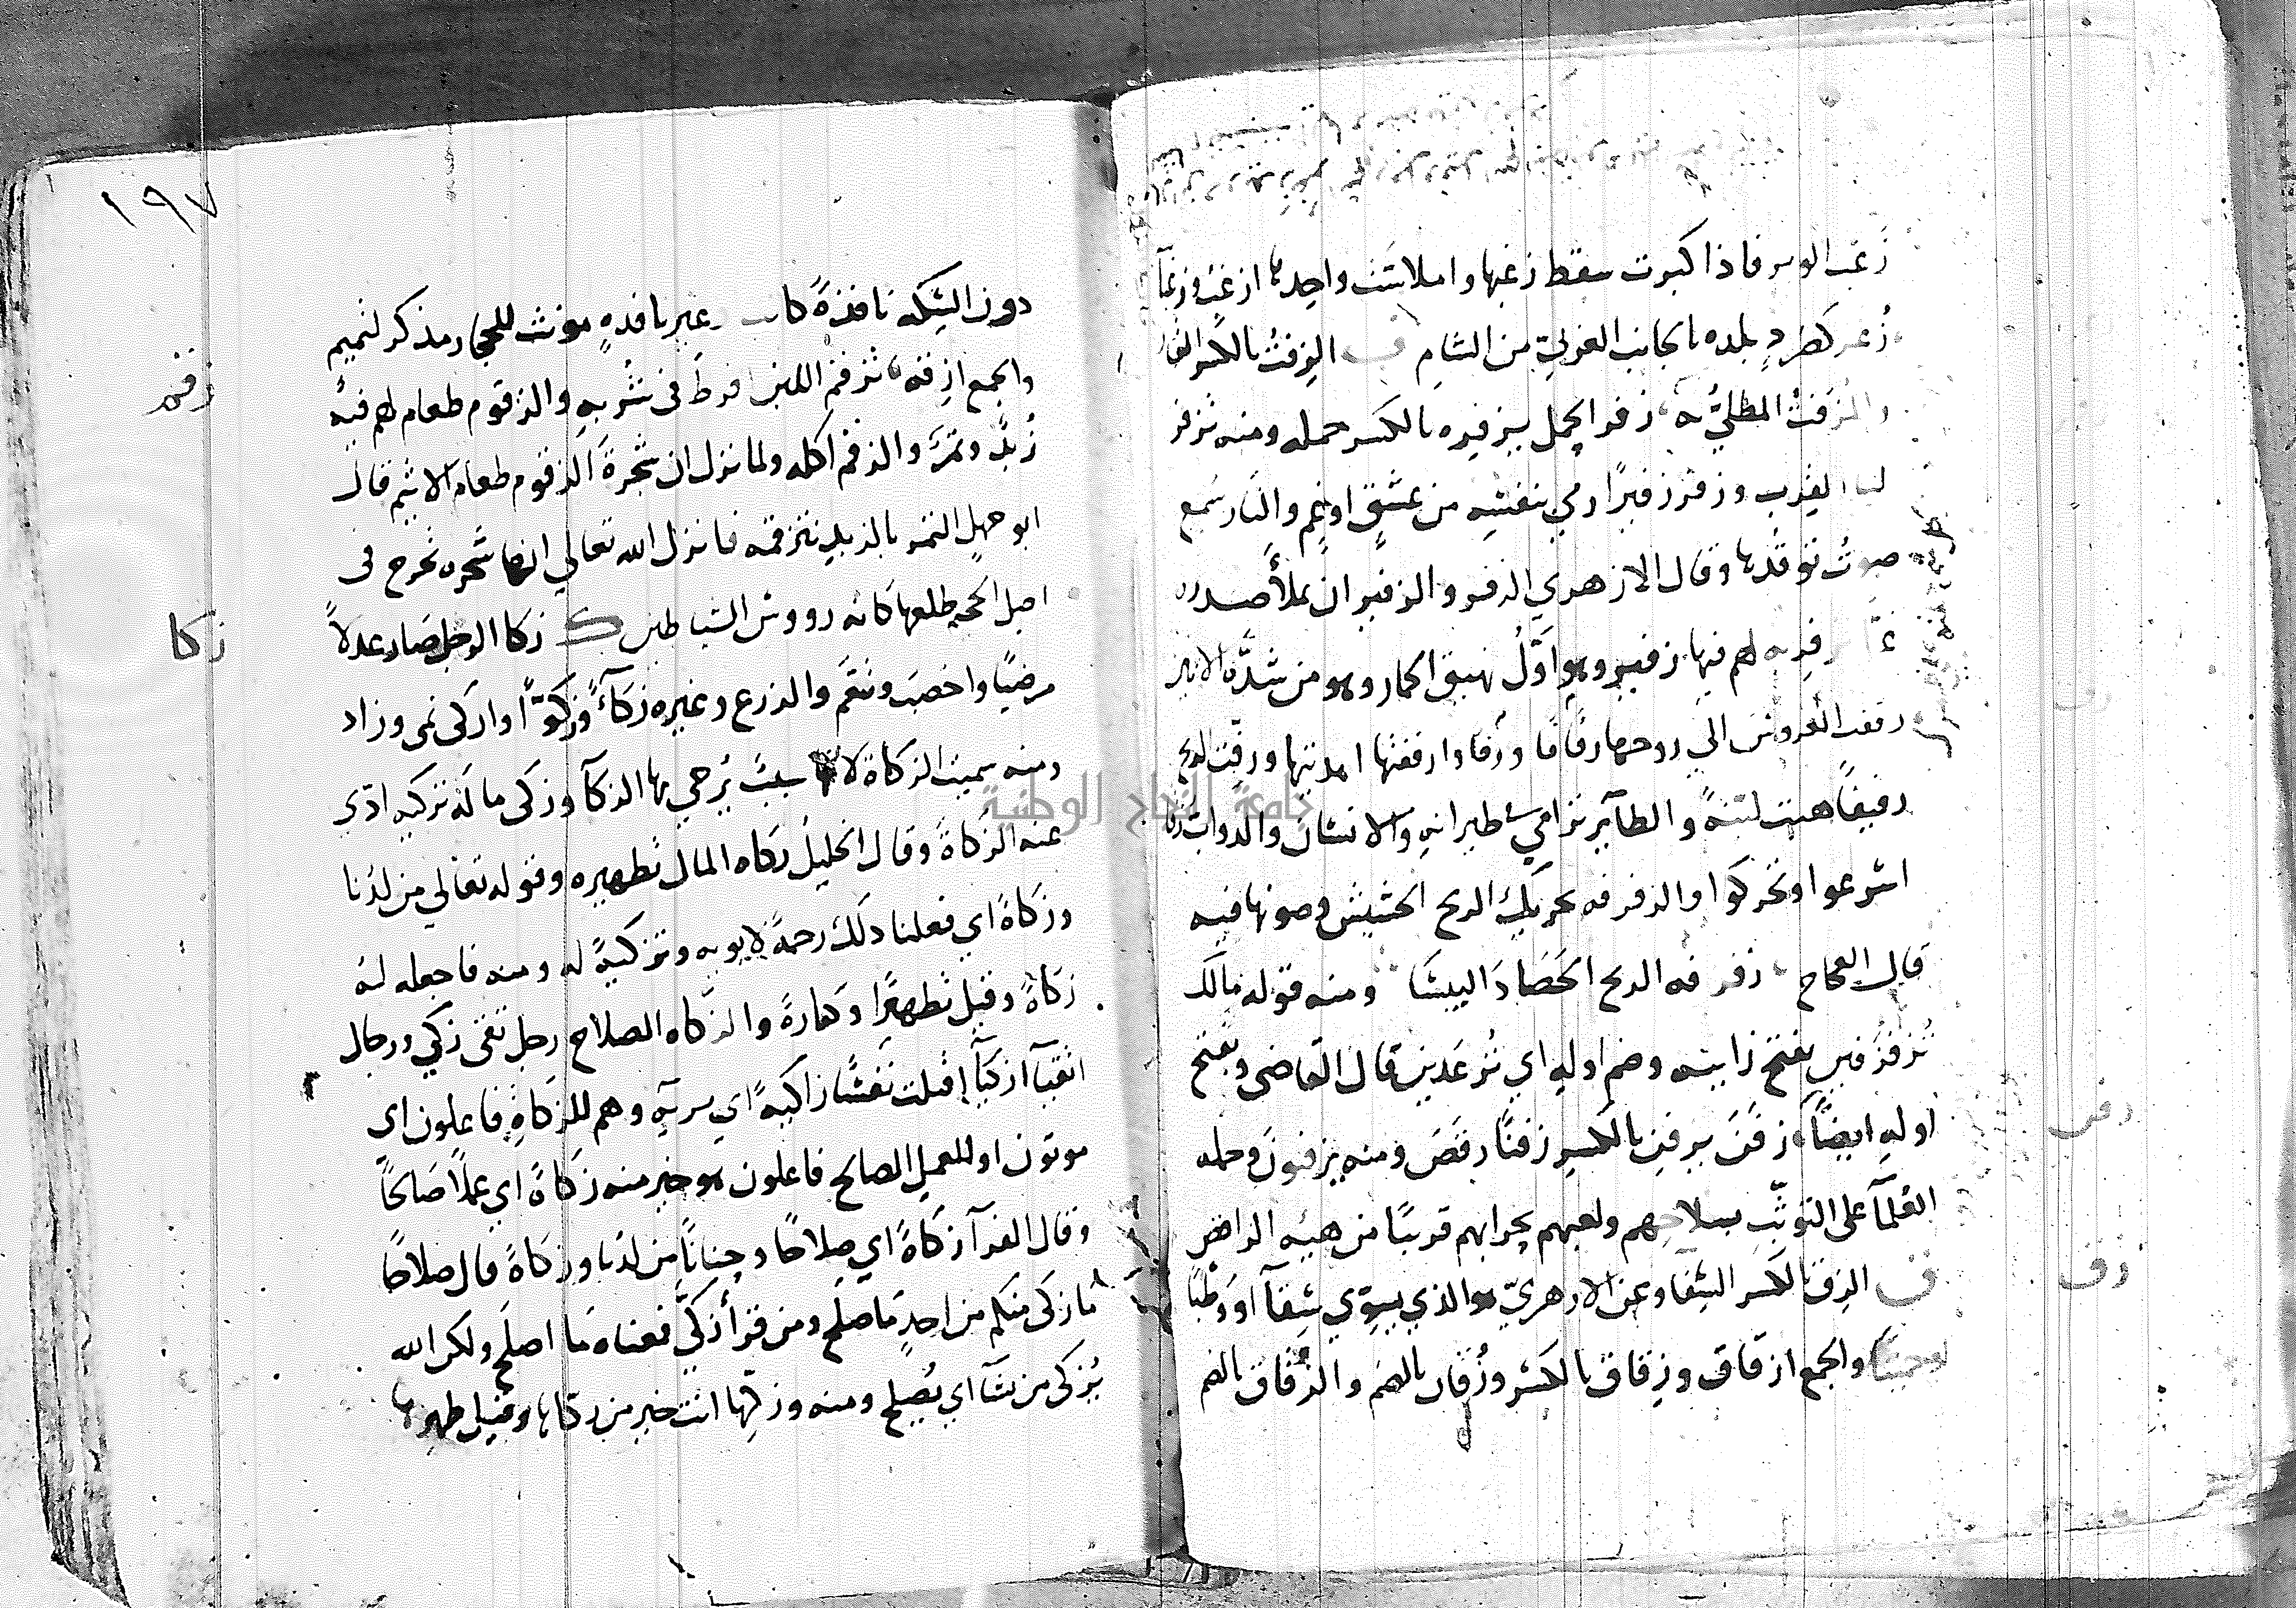 زغب الوبر فاذا كبرت سقط زغبها واملاست واحدها ازغب وزغبا
زُعر كصرد بلده بالجانب الغربي من الشام ف الزفت بالكسر القار
والمزفت المطلي به زفر الحمل يزفره بالكسر حمله ومنه تزفر
لنا القرب وزفر زفيرًا رمي بنفسه من عشق او غم والنار سمع
صوت توقدها وقال الازهري الزفر والزفير ان يملأ صدره
غما لهم فيها زفير وهو اول نهيق الحمار وهو من شدة الانين
زففت العروس الي زوجها زفافا وزفا وازففتها اهديتها وزفت الريح
زفيفا هبت لينة والطآير ترامي بطيرانه والانسان والدواب
اسرعوا وتحركوا والزفزفه تحريك الريح الحشيش وصوتها فيه
قال العجاج زفزفه الريح الحصاد اليبسا ومنه قوله مالك
تزفزفين بفتح زاييه وضم اوله اي ترعدين قال القاضي وبفتح
اوله ايضًا زفن يزفن بالكسر زفنًا رقص ومنه يزفنون وحمله
العلمآ على التوثب بسلاحهم ولعبهم بحرابهم قريبًا من هيئه الراقص
زفن
ق الزق بالكسر السقا وعن الازهري هو الذي يسوي سقآ او وطبا
زقق
والجمع ازقاق وزقاق بالكسر وزُقان بالضم والزقاق بالضم
١٩٧
دون السكه نافذةً كانت او غير نافذه مونث للحجاز مذكر لتميم
والجمع ازقه تزقم اللبن افرط في شربه والزقوم طعام لهم فيه
زقم
زُبد وتمر والزقم اكله ولما نزل ان شجرة الزقوم طعام الاثيم قال
ابو جهل التمر بالزبد نتزقمه فانزل الله تعالي انها شجره تخرج في
اصل الجحيم طلعها كانه رووس الشياطين ك زكا الرجل صار عدلاً
زكا
مرضيًا واخصب وتنعم والزرع وغيره زكآءً وزكوًّا وازكى نمى وزاد
ومنه سميت الزكاة لانها سبب يُرجي بها الزكآ وزكى ماله تزكيه ادّى
عنه الزكاة وقال الخليل زكاه المال تطهيره وقوله تعالي من لدنا
وزكاةً اي فعلنا ذلك رحمةً لابويه وتزكيةً له ومنه فاجعله له
زكاةً وقيل تطهيرًا وكفارةً والزكاه الصلاح رجل تقي زكي ورجال
اتقيآ ازكيآ اقتلت نفسًا زاكيةً اي بريه وهم للزكاة فاعلون اي
موتون او للعمل الصالح فاعلون هو خير منه زكاةً اي عملاً صالحًا
وقال الفرآ زكاةً اي صلاحًا وحنانًا من لدنا وزكاةً قال صلاحًا
ما زكى منكم من احد ما صلح ومن قرأ زكّى فمعناه ما اصلح ولكن الله
يُزكى من يشآ اي يُصلح ومنه وزكها انت خير من زكاها وقيل طهرها
جامعة النجاح الوطنية